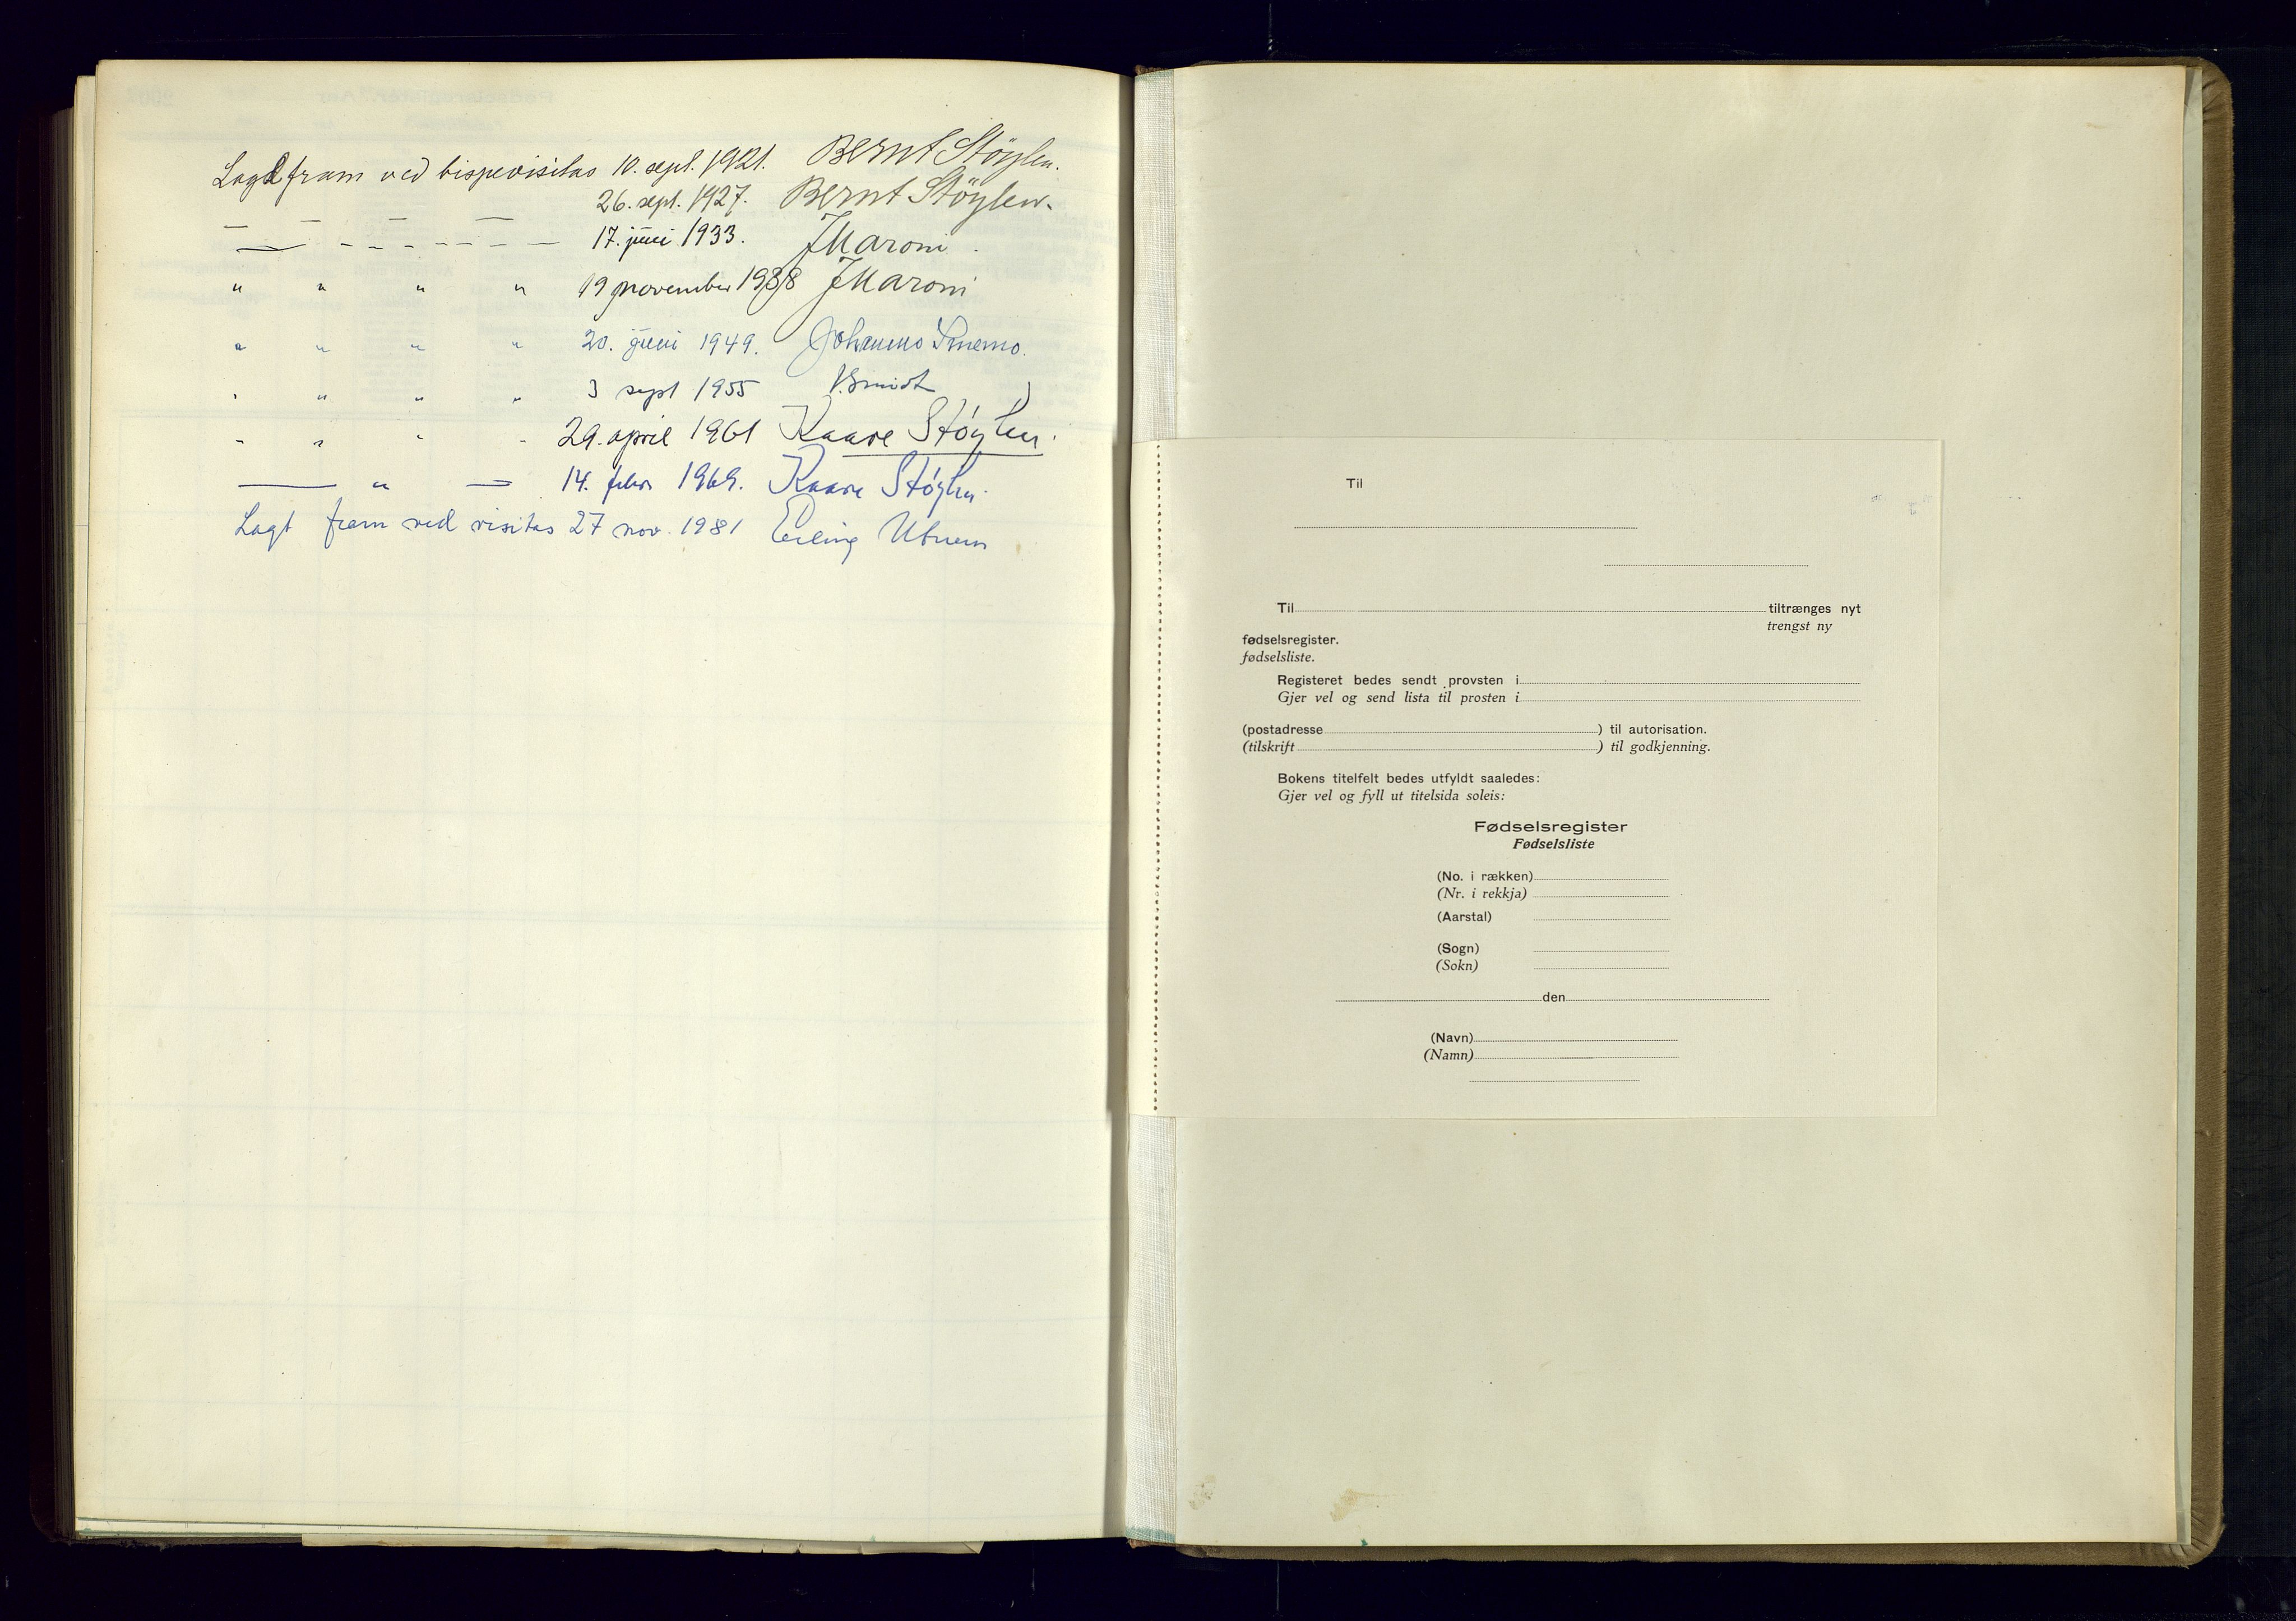 Lagd fram ved bispevisitas 10. sept. 1921. Bernt Støylen.
— — — — 26. sept. 1927. Bernt Støylen.
— - - - - - - — 17. juni 1933. J Maroni.
" " " " 19 november 1938 J Maroni
" " " " 20. juni 1949. Johannes Smemo.
" " " " 3 sept 1955 J. Smidt
" " " " 29. april 1961 Kaare Støylen.
— " — 14. febr 1969. Kaare Støylen.
Lagt fram ved visitas 27 nov. 1981 Erling Utnem
Til
Til tiltrænges nyt
trengst ny
fødselsregister.
fødselsliste.
Registeret bedes sendt provsten i
Gjer vel og send lista til prosten i
(postadresse ) til autorisation.
(tilskrift ) til godkjenning.
Bokens titelfelt bedes utfyldt saaledes:
Gjer vel og fyll ut titelsida soleis:
Fødselsregister
Fødselsliste
(No. i rækken)
(Nr. i rekkja)
(Aarstal)
(Sogn)
(Sokn)
den
(Navn)
(Namn)